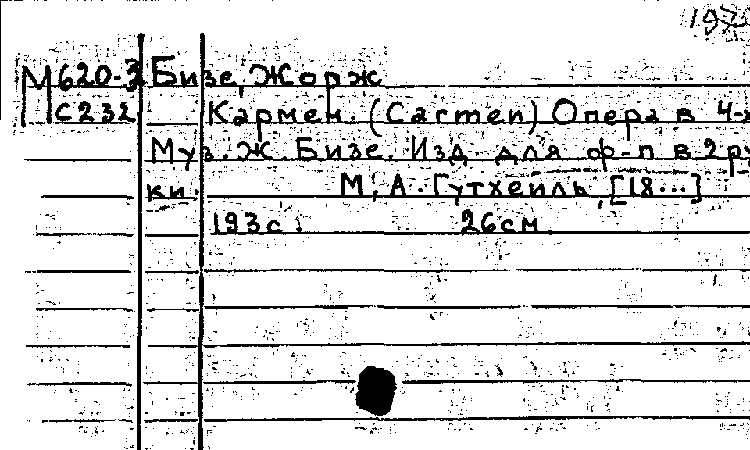 М620-3 Бизе, Жорж
С232 Кармен. (Carmen) Опера в 4-х
Муз. Ж. Бизе. Изд. для ф-п в 2 ру
ки. М., А. Гутхейль, [18...]
193с. 26см.